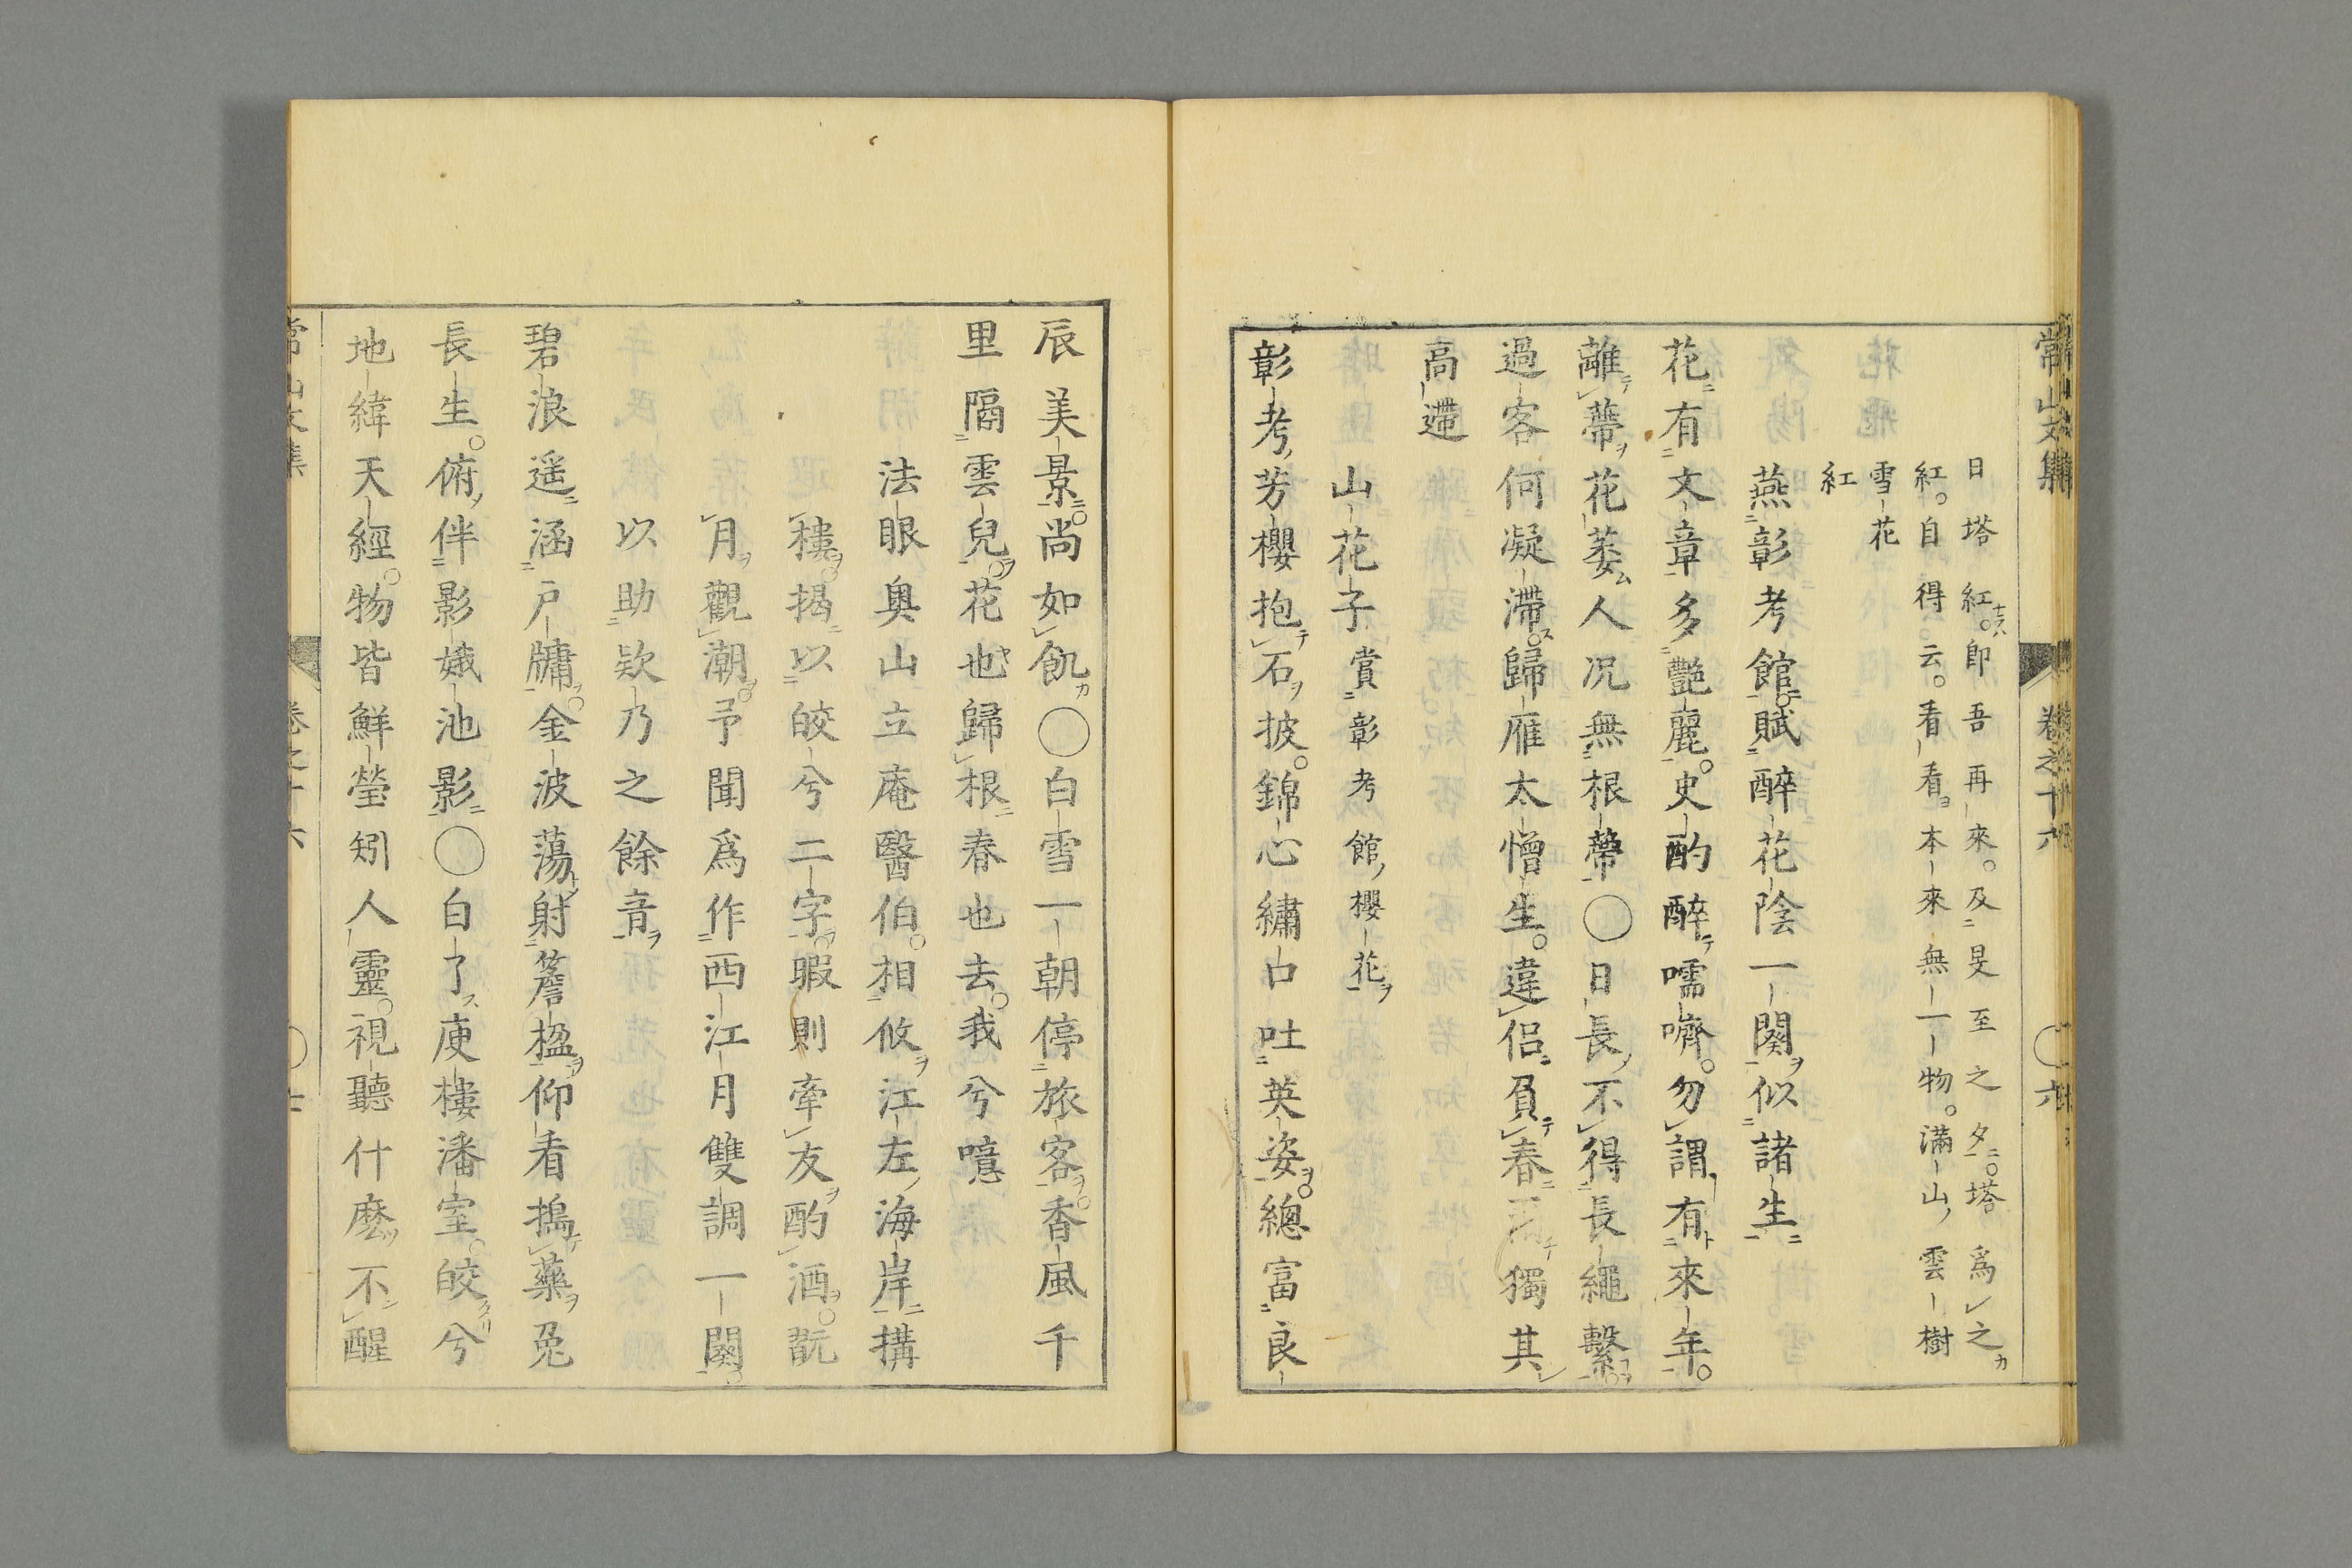 常山文集 卷之十六 〇六
日塔紅。即吾再來。及旻至之夕。塔爲之
紅。自得云。看看本來無一物。滿山雲樹
雪花
紅
燕彰考館。賦醉花陰一闋似諸生
花有文章多艷麗。史酌醉嚅嚌。勿謂有來年。
離蔕花萎人况無根蔕〇日長不得長繩繫。
過客何凝滯。歸雁太憎生。違侶負春獨其
高遰
山花子賞彰考館櫻花
彰考芳櫻抱石披。錦心繡口吐英姿。總富良
辰美景。尚如飢〇白雪一朝停旅客。香風千
里隔雲兒。花也歸根春也去。我兮噫
法眼奧山立庵醫伯。相攸江左海岸搆
樓。揭以皎兮二字暇則牽友酌酒。翫
月觀潮。予聞爲作西江月雙調一闋。
以助欵乃之餘音
碧浪遥涵戶牗。金波蕩射簷楹仰看搗藥兎
長生。俯伴影娥池影〇白了庾樓潘室。皎兮
地緯天經。物皆鮮瑩矧人靈。視聽什麽不醒
常山文集 卷之十六 〇七